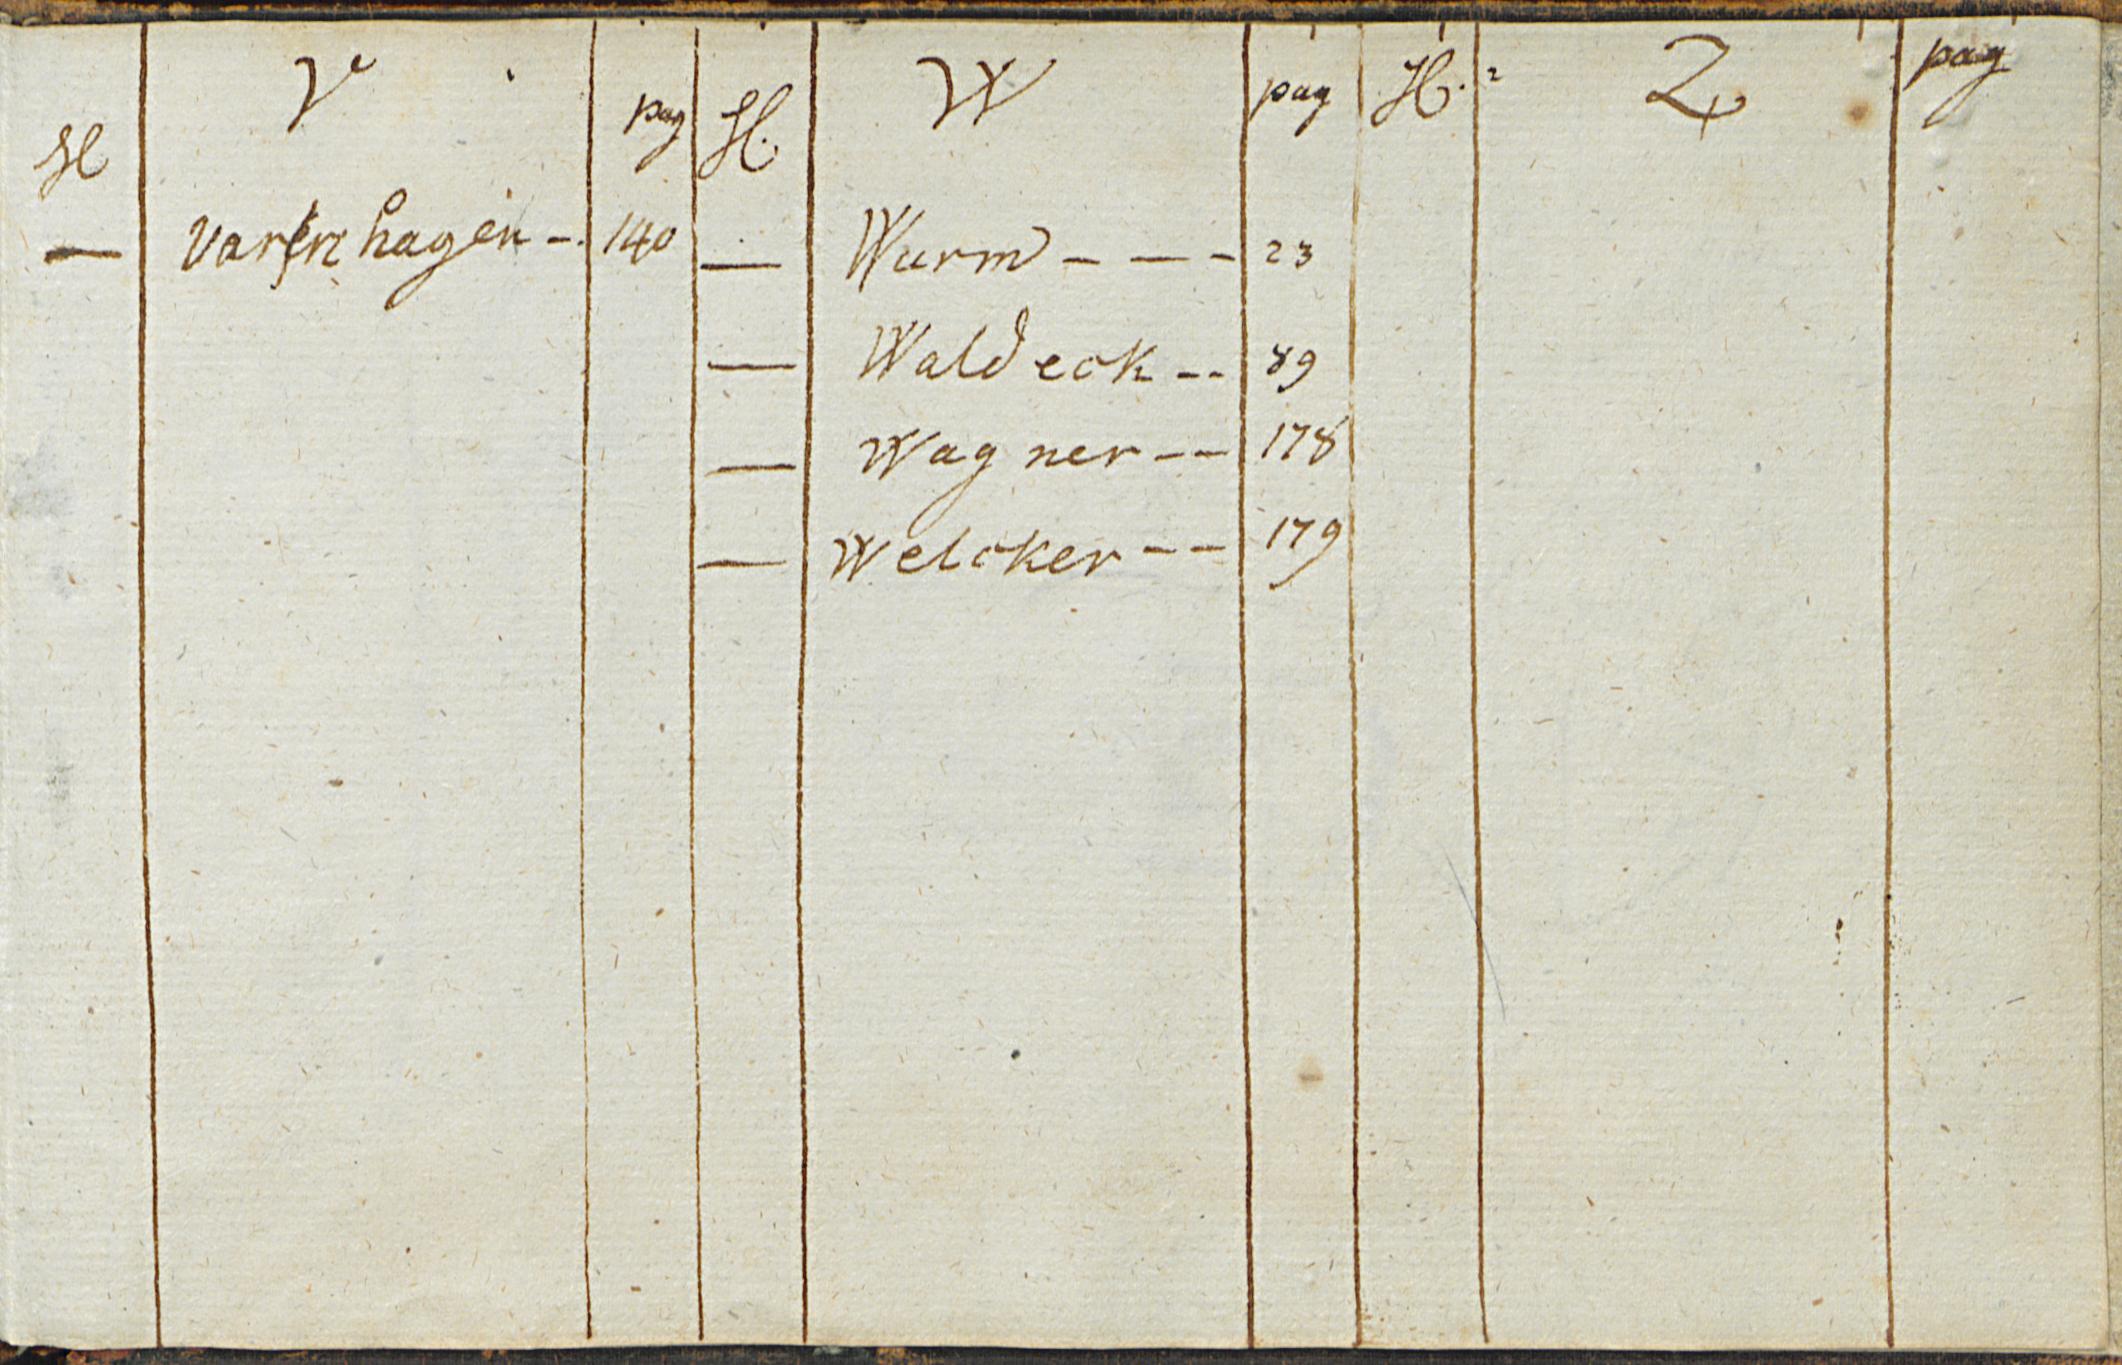 H V pag H. W pag H. Z pag
— Varnhagen -. 140 — Wurm - - - 23
— Waldeck -- 89
— Wagner -- 178
— Welcker -- 179